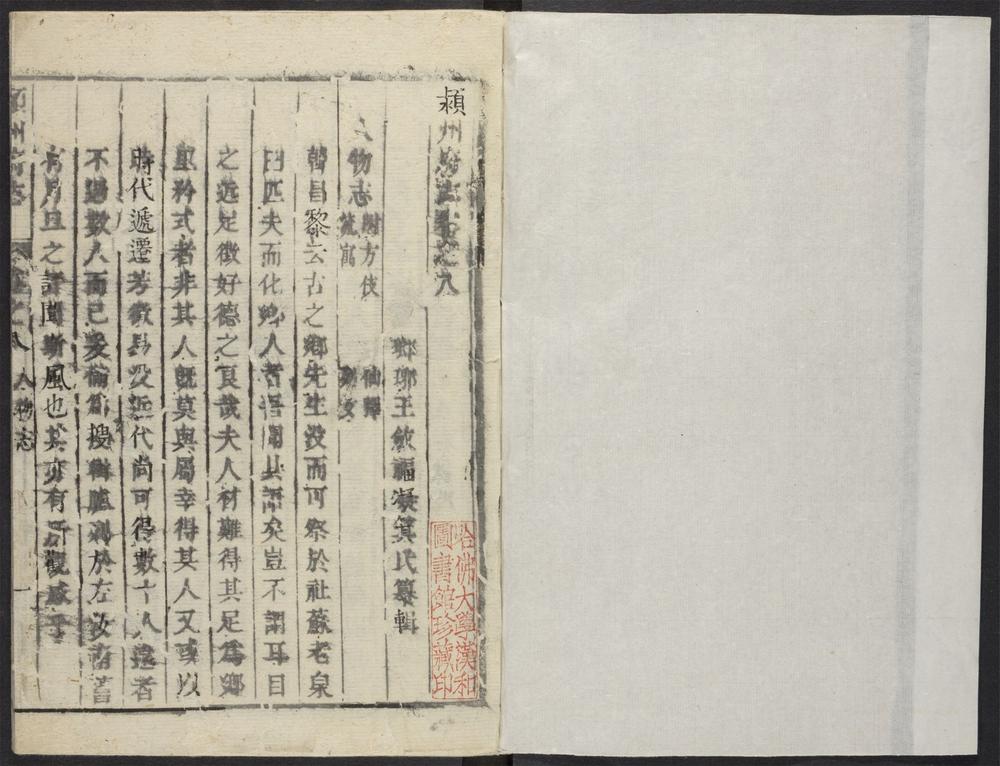 潁州府志卷之八
瑯琊王斂福凝箕氏纂輯
人物志
附方伎
流寓
仙釋
列女
韓昌黎云古之鄉先生没而可祭於社蘇老泉
曰匹夫而化鄉人者吾聞其語矣豈不謂耳目
之近足徵好德之良哉夫人材難得其足爲鄉
里矜式者非其人既莫與屬幸得其人又或以
時代遞遷芳徽易没近代尚可得數十人遠者
不過數人而已爰
搜輯臚列於左汝南舊
有月旦之評聞斯風也其亦有所觀感乎
潁州府志
卷之八
人物志
一
哈佛大學漢和
圖書館珍藏印